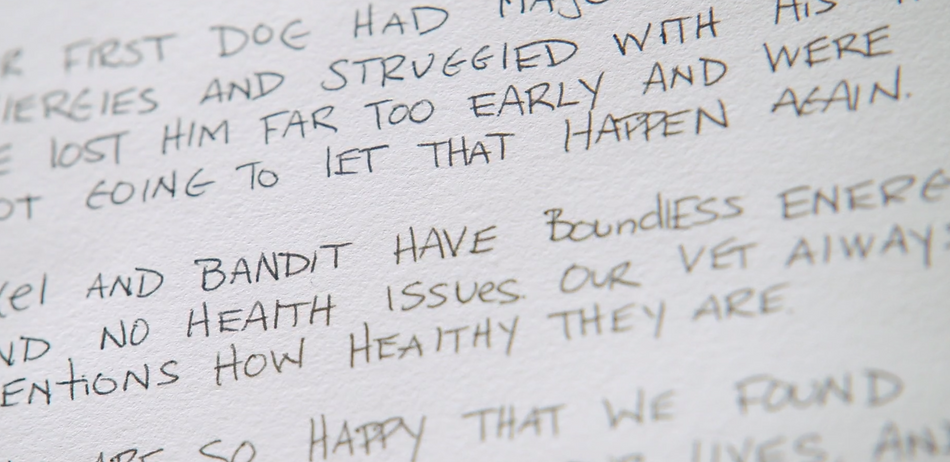 R FIRST DOG HAD MAJO
LERGIES AND STRUGGLED WITH HIS
E LOST HIM FAR TOO EARLY AND WERE
OT GOING TO LET THAT HAPPEN AGAIN.
kel AND BANDIT HAVE BoundlESS ENERG
ND NO HEALTH ISSUES. OUR VET ALWAYS
ENTIONS HOW HEALTHY THEY ARE.
ARE SO HAPPY THAT WE FOUND
LIVES. AN